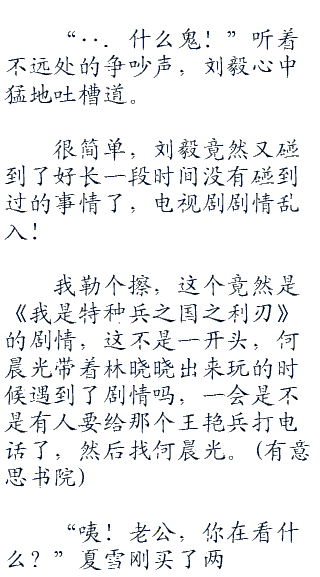 “··. 什么鬼！”听着
不远处的争吵声，刘毅心中
猛地吐槽道。
很简单，刘毅竟然又碰
到了好长一段时间没有碰到
过的事情了，电视剧剧情乱
入！
我勒个擦，这个竟然是
《我是特种兵之国之利刃》
的剧情，这不是一开头，何
晨光带着林晓晓出来玩的时
候遇到了剧情吗，一会是不
是有人要给那个王艳兵打电
话了，然后找何晨光。(有意
思书院)
“咦！老公，你在看什
么？”夏雪刚买了两